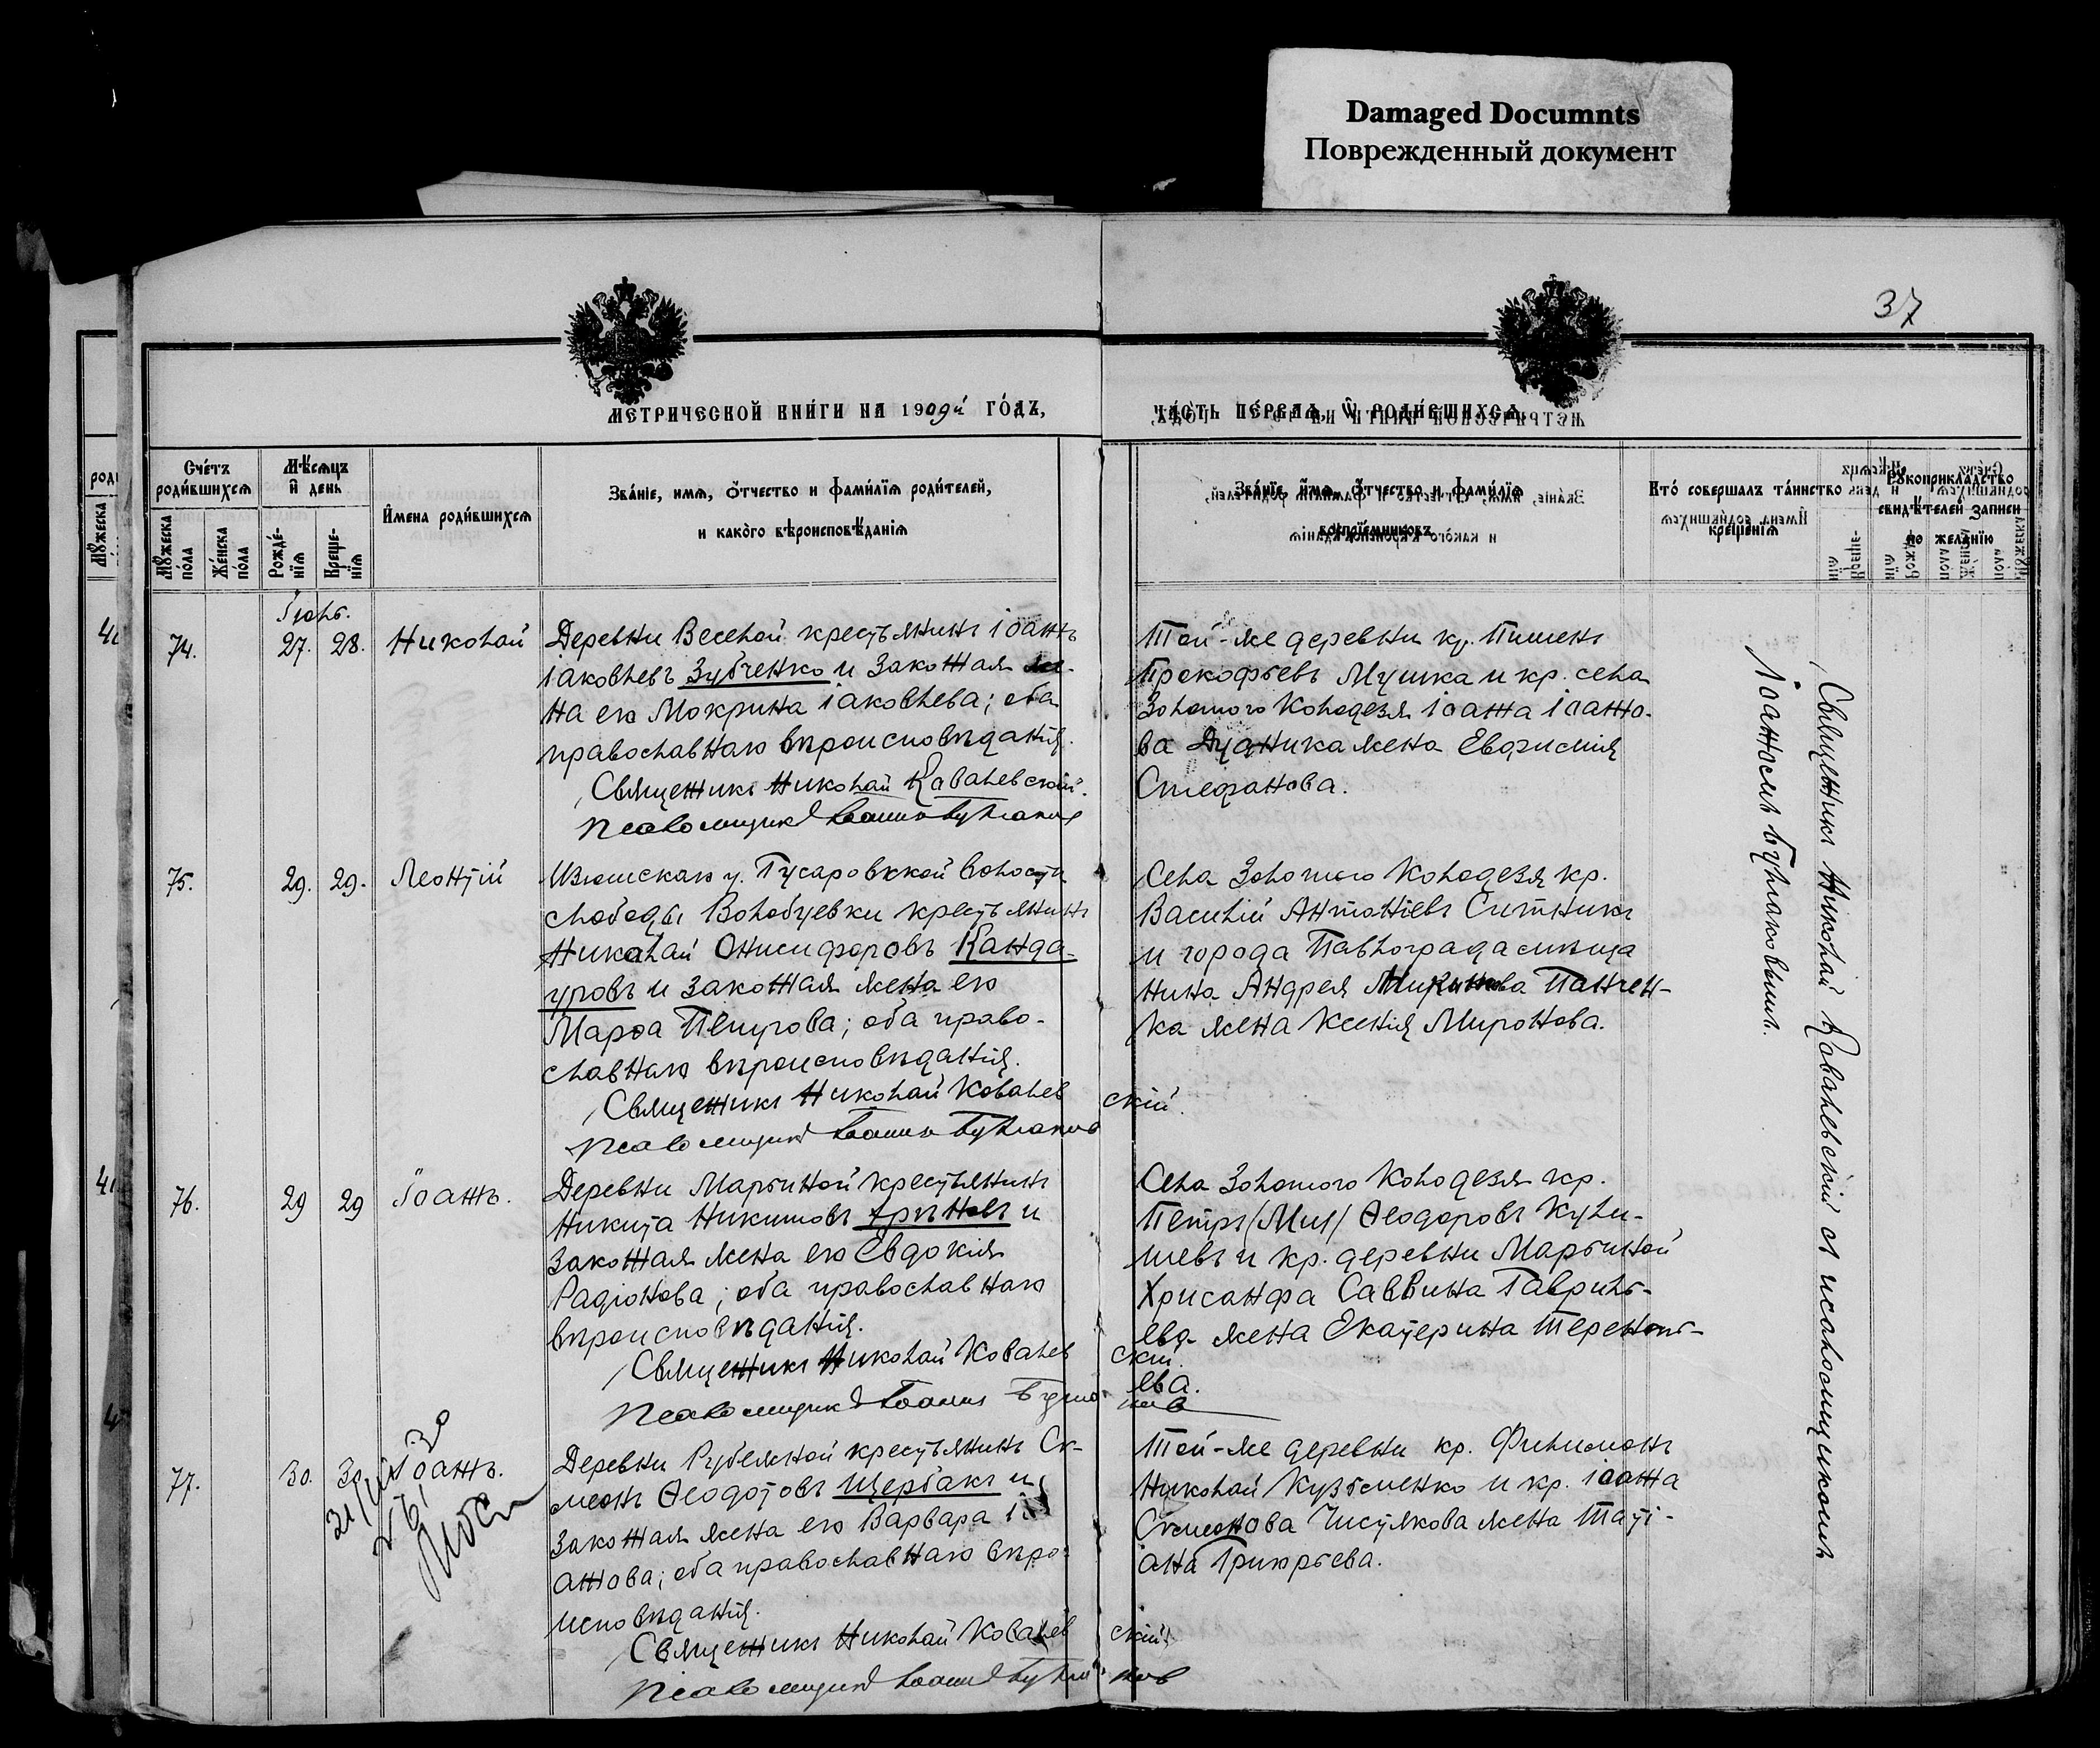 Damaged Documnts
Поврежденный документ
37
МЕТРИЧЕСКОЙ КНИГИ НА 1909й ГОДЪ,
ЧАСТЬ ПЕРВАЯ, Ѿ РОДИВШИХСЯ.
Счетъ родившихся
Мужеска пола
Женска пола
Мѣсяцъ и день
Рожденія
Крещенія
Имена родившихся
Званіе, имя, отчество и фамилія родителей,
и какого вѣроисповѣданія
Званіе, имя, отчество и фамилія
воспріемниковъ
Кто совершалъ таинство
крещенія
Рукоприкладство
свидѣтелей записи
по желанію
Іюнь.
74.
27. 28.
Николай
Деревни Веселой крестьянинъ Іоаннъ
Іаковлевъ Зубченко и законная же-
на его Мокрина Іаковлева; оба
православнаго вѣроисповѣданія.
Священникъ Николай Ковалевскій.
Псаломщикъ Іоаннъ Булгаковъ
Той-же деревни кр. Пименъ
Прокофьевъ Мушка и кр. села
Золотого Колодезя Іоанна Іоанно-
ва Дудника жена Евфимія
Стефанова.
75.
29. 29.
Леонтій
Изюмскаго у. Гусаровской волости
слободы Волобуевки крестьянинъ
Николай ОнисифоровъКанда-
уровъ и законная жена его
Марфа Петрова; оба право-
славнаго вѣроисповѣданія.
Священникъ Николай Ковалевскій.
Псаломщикъ Іоаннъ Булгаковъ
Села Золотого Колодезя кр.
Василій Антоніевъ Ситникъ
и города Павлограда мѣща
нина Андрея Панчен-
ка жена Ксенія Миронова.
76.
29 29
Іоаннъ.
Деревни Марьиной крестьянинъ
Никита Никитовъ Хрѣновъ и
законная жена его Евдокія
Радіонова; оба православнаго
вѣроисповѣданія.
Священникъ Николай Ковалевскій.
Псаломщикъ Іоаннъ Булгаковъ
Села Золотого Колодезя кр.
Петръ Ѳеодоровъ Кули-
шевъ и кр. деревни Марьиной
Хрисанфа Саввина Гаврилъ-
ева жена Екатерина Терентъ-
ева.
77.
30. 30
Іоаннъ.
Деревни Рубежной крестьянинъ Си-
меонъ Ѳеодотовъ Щербакъ и
законная жена его Варвара Іо-
аннова; оба православнаго вѣро-
исповѣданія.
Священникъ Николай Ковалевскій
Псаломщикъ Іоаннъ Булгаковъ
Той-же деревни кр. Филимонъ
Николай Кузьменко и кр. Іоанна
Симеонова Чистякова жена Таті-
ана Григорьева.
Священникъ Николай Ковалевскій съ псаломщикомъ
Іоанномъ Булгаковымъ.